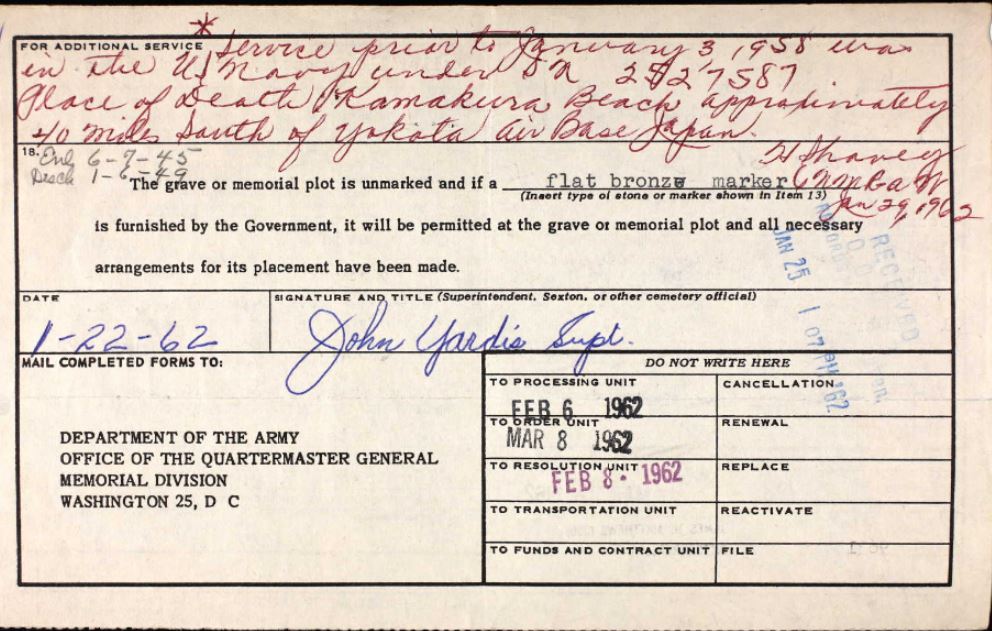 *
FOR ADDITIONAL SERVICE Service prior to January 3, 1958 was
in the US Navy under SN 2527587.
Place of Death Kamakura Beach approximately
40 miles South of Yokota Air Base Japan.
18. Enl 6-7-45
Disch 1-6-49
Jan 29, 1962
The grave or memorial plot is unmarked and if a flat bronze marker
(Insert type of stone or marker shown in Item 13)
is furnished by the Government, it will be permitted at the grave or memorial plot and all necessary
arrangements for its placement have been made.
RECEIVED
JAN 25 1 07 PM '62
DATE
1-22-62
SIGNATURE AND TITLE (Superintendent, Sexton, or other cemetery official)
John Yardis Supt.
MAIL COMPLETED FORMS TO:
DEPARTMENT OF THE ARMY
OFFICE OF THE QUARTERMASTER GENERAL
MEMORIAL DIVISION
WASHINGTON 25, D C
DO NOT WRITE HERE
TO PROCESSING UNIT
FEB 6 1962
CANCELLATION
TO ORDER UNIT
MAR 8 1962
RENEWAL
TO RESOLUTION UNIT
FEB 8 · 1962
REPLACE
TO TRANSPORTATION UNIT
REACTIVATE
TO FUNDS AND CONTRACT UNIT
FILE